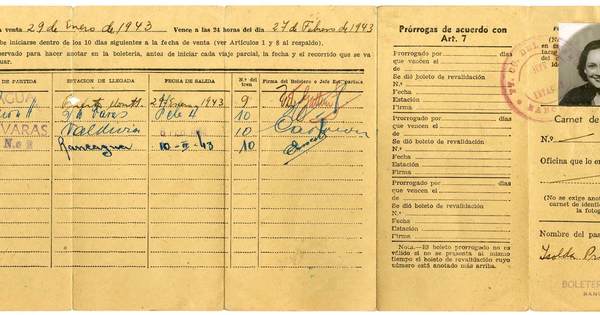 a venta 29 de Enero de 1943 Vence a las 24 horas del día 27 de Febrero de 1943
be iniciarse dentro de los 10 días siguientes a la fecha de venta (ver Artículos 1 y 8 al respaldo).
rvado para hacer anotar en la boletería, antes de iniciar cada viaje parcial, la fecha y el recorrido que se va
DE PARTIDA ESTACION DE LLEGADA FECHA DE SALIDA N.º del tren Firma del Boletero o Jefe Est. partida
GUA 1943 9
10
VARAS Valdivia 10
N.o 2 Rancagua 10-II-43 10
Prórrogas de acuerdo con
Art. 7
Prorrogado por días
que vencen el de
Se dió boleto de revalidación
N.º
Fecha
Estación
Firma
Prorrogado por días
que vencen el de
Se dió boleto de revalidación
N.º
Fecha
Estación
Firma
Prorrogado por días
que vencen el de
Se dió boleto de revalidación
N.º
Fecha
Estación
Firma
NOTA.—El boleto prorrogado no es
válido si no se presenta al mismo
tiempo el boleto de revalidación cuyo
número está anotado más arriba.
Carnet de
N.º
Oficina que lo en
(No se exige anot
carnet de identid
la fotog
Nombre del pas
Isolda Pr
BOLETER
RANC